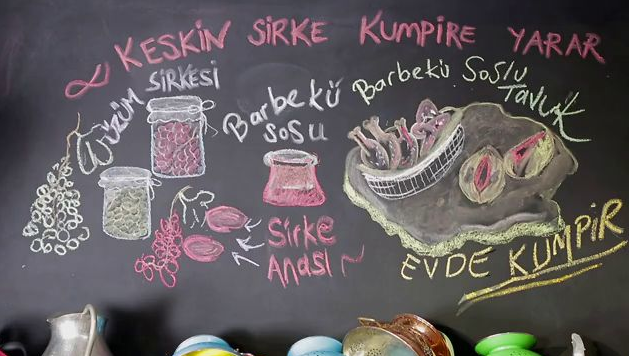 KESKİN SİRKE KUMPİRE YARAR
ÜZÜM SİRKESİ
Barbekü SoSU
Barbekü Soslu Tavuk
Sirke Anası
EVDE KUMPİR